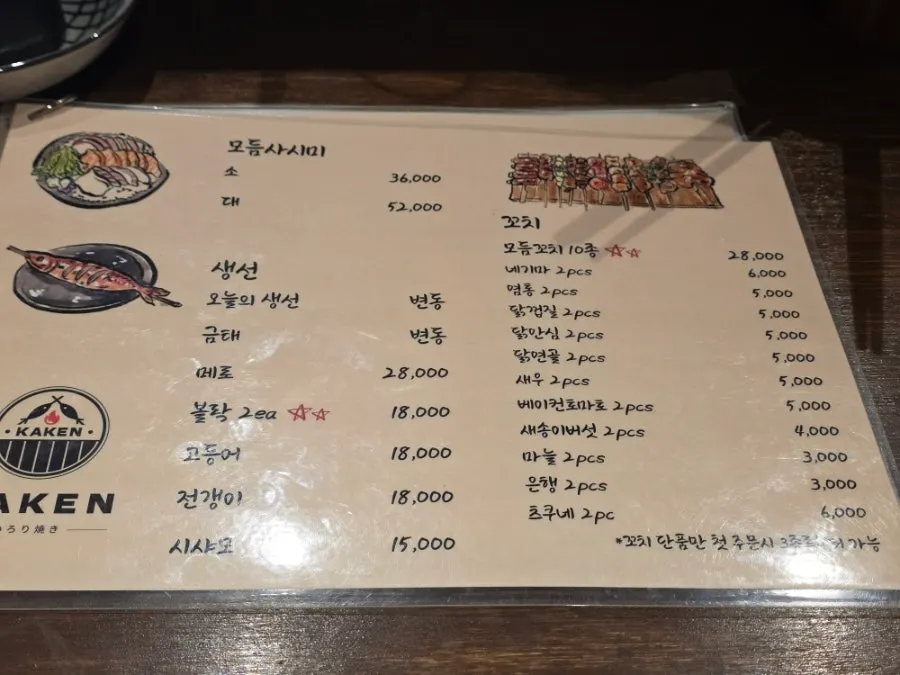 모듬사시미
소 36,000
대 52,000
생선
오늘의 생선 변동
금태 변동
메로 28,000
볼락 2ea ☆☆ 18,000
고등어 18,000
전갱이 18,000
시샤모 15,000
· KAKEN ·
AKEN
ろり焼き
꼬치
모듬꼬치 10종 ☆☆ 28,000
네기마 2pcs 6,000
염통 2pcs 5,000
닭껍질 2pcs 5,000
닭안심 2pcs 5,000
닭연골 2pcs 5,000
새우 2pcs 5,000
베이컨토마토 2pcs 5,000
새송이버섯 2pcs 4,000
마늘 2pcs 3,000
은행 2pcs 3,000
츠쿠네 2pc 6,000
*꼬치 단품만 첫 주문시 가능